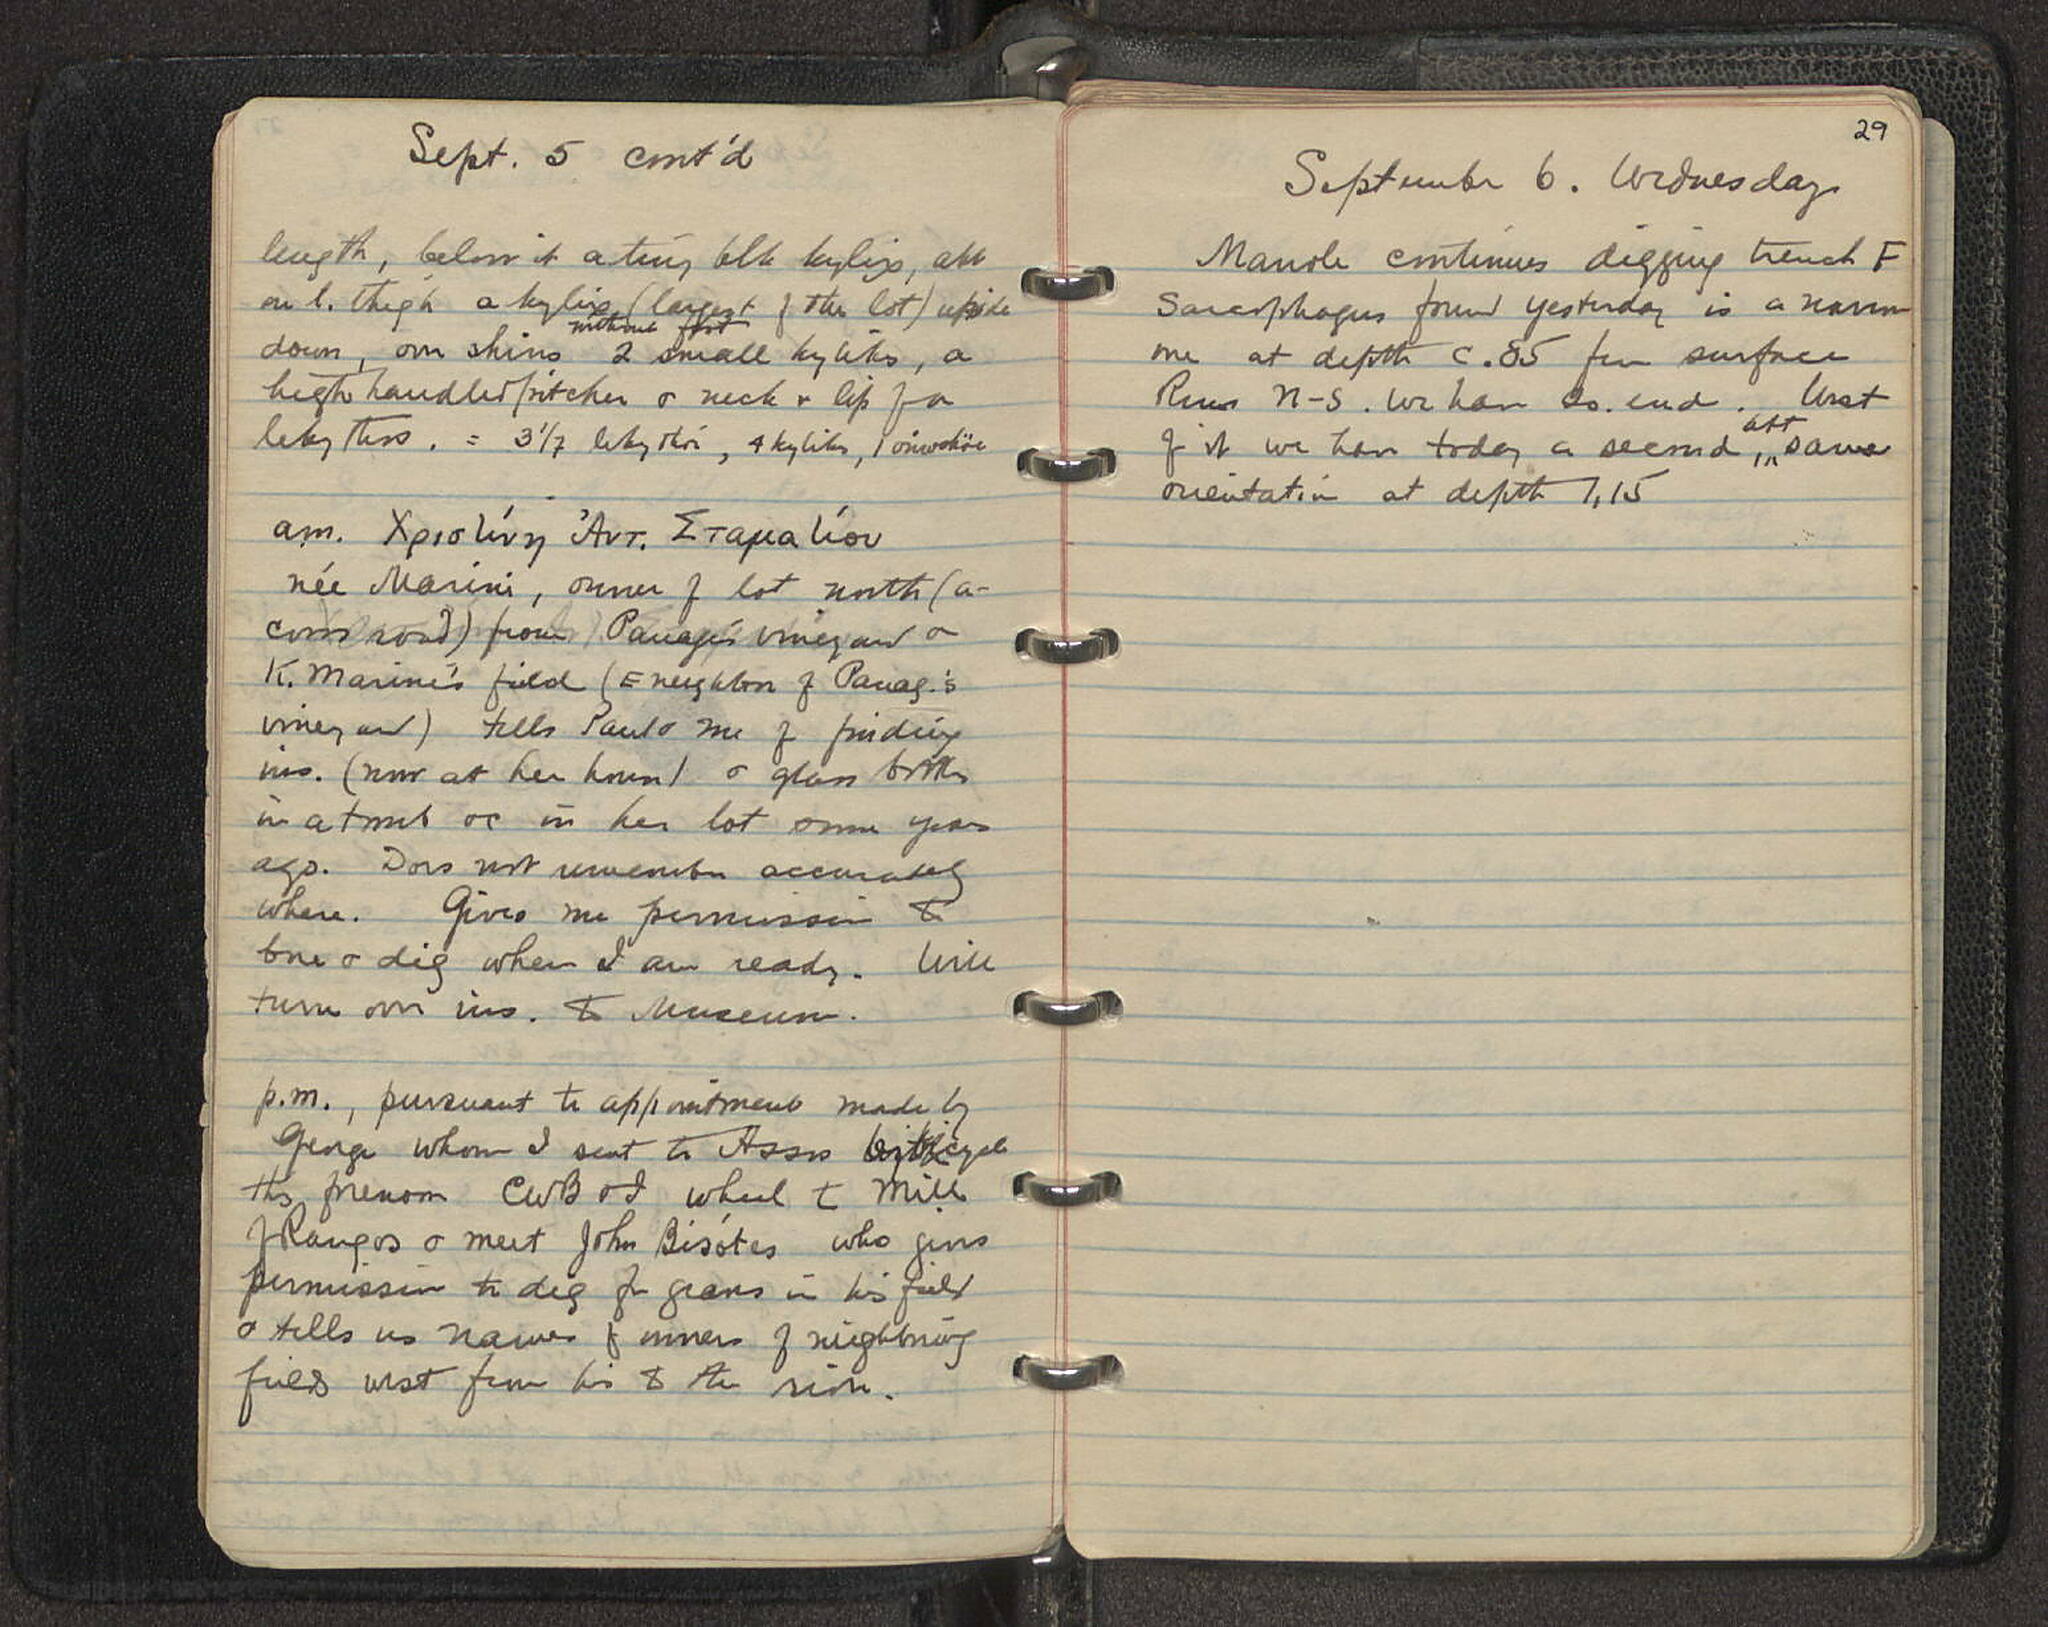 Sept. 5 cont'd
length, below it a tiny blk kylix, att
on l. thigh a kylix (largest of the lot) upside
without foot
down, over shins 2 small kylikes, a
high handled pitcher & neck & lip of a
lekythos. = 3 1/7 lekythoi, 4 kylikes, 1 oinochöe
a.m. Χριστίνη Ἀντ. Σταματίου
née Marini, owner of lot north (a-
cross road) from Panagi's vineyard &
K. Marini's field (E neighbor of Panag.'s
vineyard) tells Paul & me of finding
ins. (now at her house) & glass bottles
in a tomb in her lot some years
ago. Does not remember accurately
where. Gives me permission to
bore & dig when I am ready. Will
turn over ins. to Museum.
p.m., pursuant to appointment made by
George whom I sent to Assos bicycle
this forenoon CWB & I wheel to Mill
of Rangos & meet John Bisótes who gives
permission to dig for graves in his field
& tells us names of owners of neighboring
fields west from his to the river.
29
September 6. Wednesday
Manole continues digging trench F
Sarcophagus found yesterday is a narrow
one at depth c .85 from surface
Runs N-S. We have So. end. West
att
of it we have today a second, same
orientation at depth 1,15